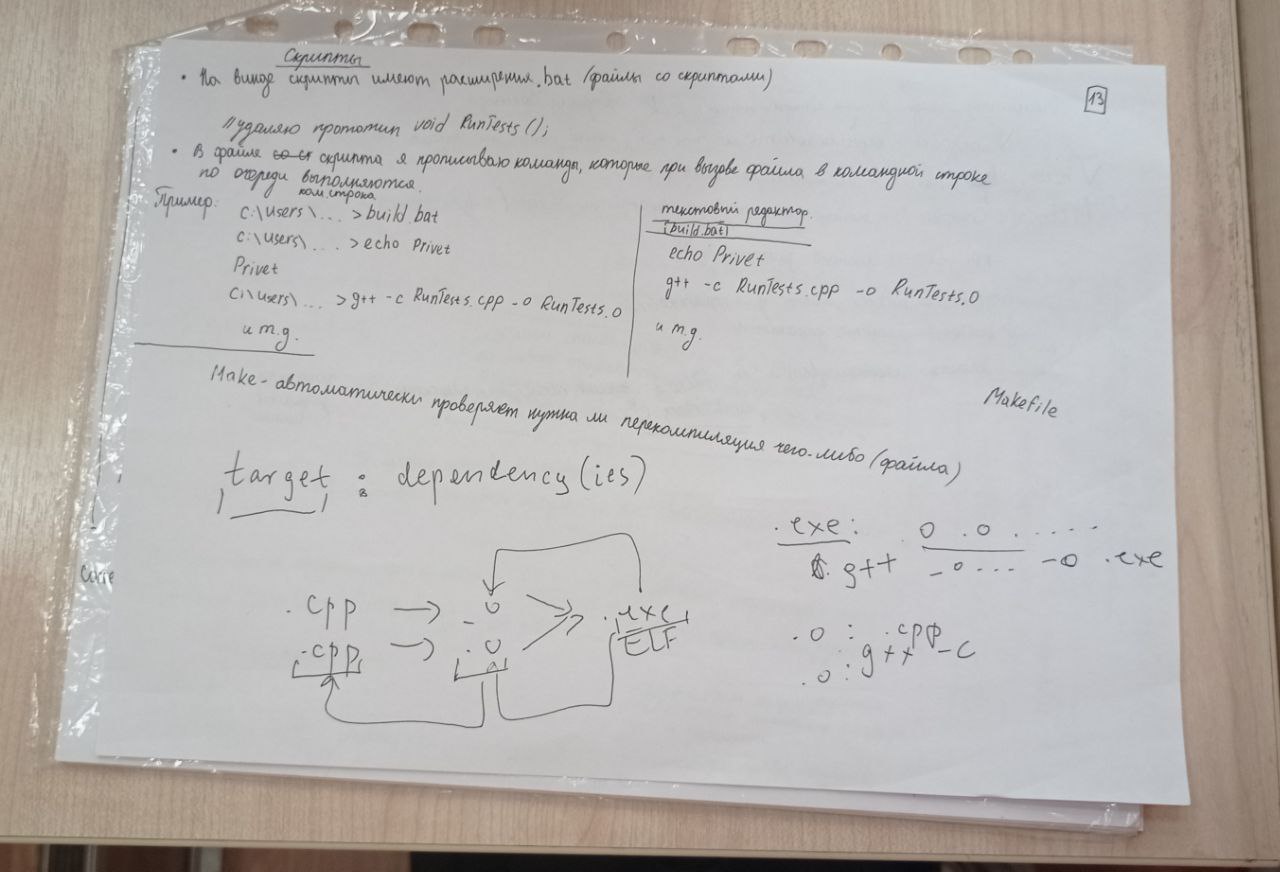 Скрипты
• На винде скрипты имеют расширения .bat (файлы со скриптами)
13
//удаляю прототип void RunTests();
• В файле скрипта я прописываю команды, которые при вызове файла в командной строке
по очереди выполняются.
Пример:
ком.строка
C:\Users\... >build.bat
C:\Users\... >echo Privet
Privet
C:\Users\... >g++ -c RunTests.cpp -o RunTests.o
и т.д.
текстовый редактор.
(build.bat)
echo Privet
g++ -c RunTests.cpp -o RunTests.o
и т.д.
Make - автоматически проверяет нужна ли перекомпиляция чего-либо (файла)
Makefile
target : dependency(ies)
.exe: .o .o .....
g++ -o... -o .exe
.cpp → .o
.cpp → .o
.exe
ELF
.o : .cpp
g++ -c
.o :
Corre